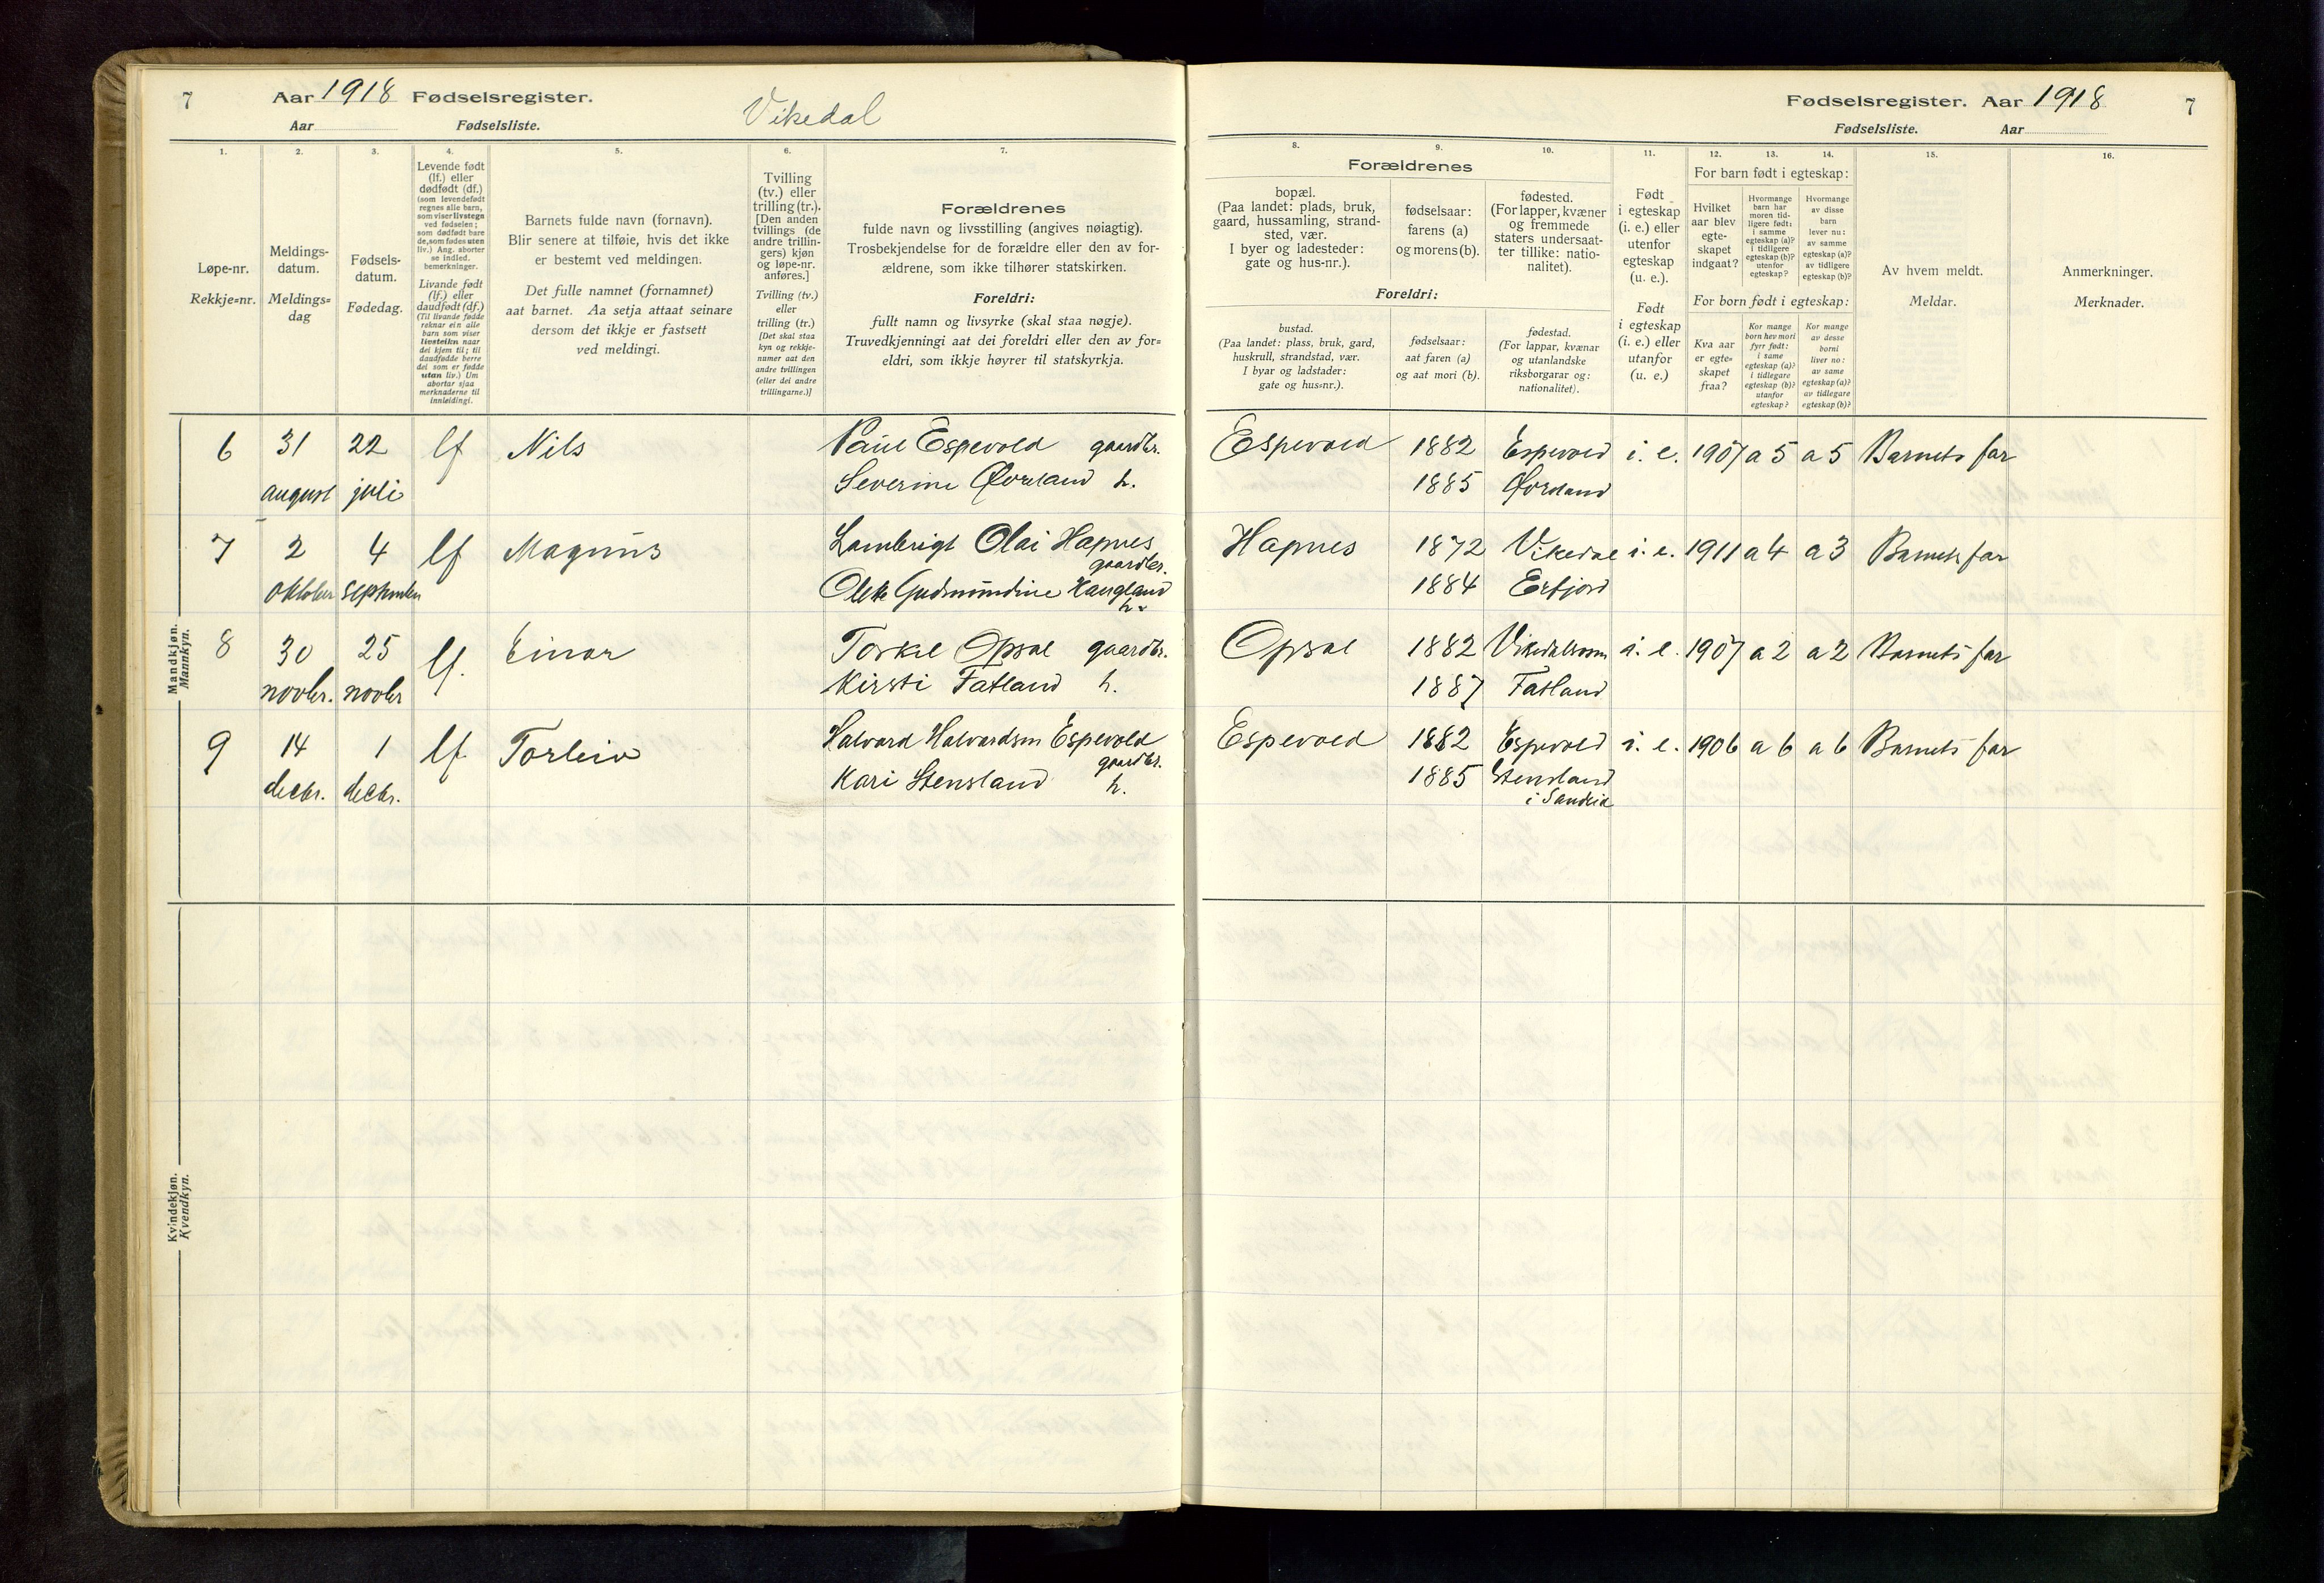 7 Aar 1918 Fødselsregister. Vikedal
Aar Fødselsliste.
Fødselsregister. Aar 1918 7
Fødselsliste. Aar
1. 2. 3. 4. 5. 6. 7.
Løpe-nr.
Rekkje-nr.
Meldings-
datum.
Meldings-
dag
Fødsels-
datum.
Fødedag.
Levende født
(lf.) eller
dødfødt (df.)
(som levendefødt
regnes alle barn,
som viser livstegn
ved fødselen;
som dødfødt bare
de, som fødes uten
liv.) Ang. aborter
se indled.
bemerkninger.
Livande født
(lf.) eller
daudfødt (df.)
(Til livande fødde
reknar ein alle
born som viser
livsteikn naar
dei kjem til; til
daudfødde berre
dei som er fødde
utan liv.) Um
abortar sjaa
merknaderne til
innleidingi.
Barnets fulde navn (fornavn).
Blir senere at tilføie, hvis det ikke
er bestemt ved meldingen.
Det fulle namnet (fornamnet)
aat barnet. Aa setja attaat seinare
dersom det ikkje er fastsett
ved meldingi.
Tvilling
(tv.) eller
trilling (tr.).
[Den anden
tvillings (de
andre trillin-
gers) kjøn
og løpe-nr.
anføres.]
Tvilling (tv.)
eller
trilling (tr.)
[Det skal staa
kyn og rekkje-
numer aat den
andre tvillingen
(eller dei andre
trillingarne.)]
Forældrenes
fulde navn og livsstilling (angives nøiagtig).
Trosbekjendelse for de forældre eller den av for-
ældrene, som ikke tilhører statskirken.
Foreldri:
fullt namn og livsyrke (skal staa nøgje).
Truvedkjenningi aat dei foreldri eller den av for-
eldri, som ikkje høyrer til statskyrkja.
8. 9. 10. 11. 12. 13. 14. 15. 16.
Forældrenes
bopæl.
(Paa landet: plads, bruk,
gaard, hussamling, strand-
sted, vær.
I byer og ladesteder:
gate og hus-nr.).
fødselsaar:
farens (a)
og morens (b).
fødested.
(For lapper, kvæner
og fremmede
staters undersaat-
ter tillike: natio-
nalitet).
Foreldri:
bustad.
(Paa landet: plass, bruk, gard,
huskrull, strandstad, vær.
I byar og ladstader:
gate og hus-nr.).
fødselsaar:
aat faren (a)
og aat mori (b).
fødestad.
(For lappar, kvænar
og utanlandske
riksborgarar og:
nationalitet).
Født
i egteskap
(i. e.) eller
utenfor
egteskap
(u. e.).
Født
i egteskap
(i. e.) eller
utanfor
(u. e.)
For barn født i egteskap:
Hvilket
aar blev
egte-
skapet
indgaat?
Hvormange
barn har
moren tid-
ligere født:
i samme
egteskap (a)?
i tidligere
egteskap (b)?
utenfor
egteskap?
Hvormange
av disse
barn
lever nu:
av samme
egteskap (a)?
av tidligere
egteskap (b)?
For born født i egteskap:
Kva aar
er egte-
skapet
fraa?
Kor mange
born hev mori
fyrr født:
i same
egteskap (a)?
i tidlegare
egteskap (b)?
utanfor
egteskap?
Kor mange
av desse
borni
liver no:
av same
egteskap (a)?
av tidlegare
egteskap (b)?
Av hvem meldt.
Meldar.
Anmerkninger.
Merknader.
Mandkjøn.
Mannkyn.
6 31 22 lf Nils Paul Espevold gaardbr. Espevold 1882 Espevold i. e. 1907 a 5 a 5 Barnets far
august juli Severine Øvreland h. 1885 Øvreland
7 2 4 lf Magnus Lambrigt Olai Hapnes Hapnes 1872 Vikedal i. e. 1911 a 4 a 3 Barnets far
gaardbr.
oktober september Gudmundine Haugland 1884 Erfjord
h.
8 30 25 lf. Einar Torkel Opsal gaardbr. Opsal 1882 i. e. 1907 a 2 a 2 Barnets far
novbr. novbr Kirsti Fatland h. 1887 Fatland
9 14 1 lf. Torleiv Halvard Halvardsen Espevold Espevold 1882 Espevold i. e. 1906 a 6 a 6 Barnets far
gaardbr.
decbr. decbr. Kari Stensland h. 1885 Stensland
i Sandeid
Kvindekjøn.
Kvendkyn.